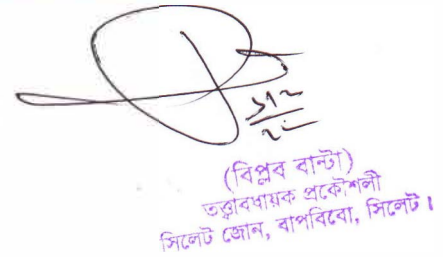 (বিপ্লব বান্টা)
তত্ত্বাবধায়ক প্রকৌশলী
সিলেট জোন, বাপবিবো, সিলেট।